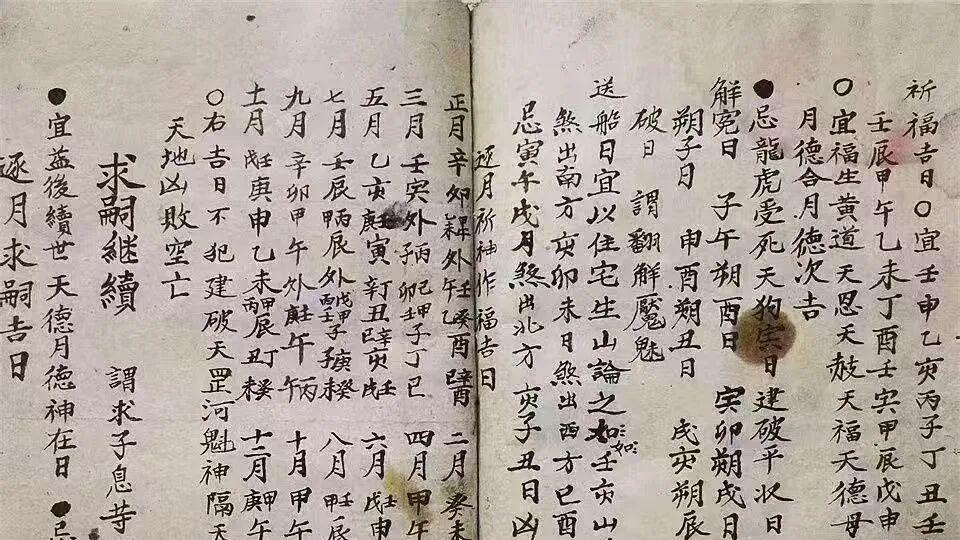 祈福吉日〇宜壬申乙亥丙子丁丑壬
壬辰甲午乙未丁酉壬寅甲辰戊申
〇宜福生黄道天恩天赦天福天德母
月德合月德次吉
●忌龍虎受死天狗寅日建破平收日
解冤日 子午朔酉日 寅卯朔戌日
朔子日 申酉朔丑日 戌亥朔辰
破日 謂翻解魘魅
送船日宜以住宅生山論之如壬亥山
如
煞出南方亥卯未日煞出西方巳酉
忌寅午戌月煞出北方亥子丑日凶
逐月祈神作福吉日
正月辛卯外壬午癸乙酉 二月癸未
三月壬寅外丙子己卯甲壬子丁巳 四月甲午
五月乙亥寅辛丑辛亥 六月戊申
七月壬辰丙辰外戊子庚癸未 八月甲辰
九月辛卯甲午外庚午丙午 十月甲午
十一月戊壬庚申乙未甲丙辰丁癸未 十二月庚甲午
〇右吉日不犯建破天罡河魁神隔天
天地凶敗空亡
求嗣継續 謂求子息寺
●宜益後續世天德月德神在日●忌
逐月求嗣吉日